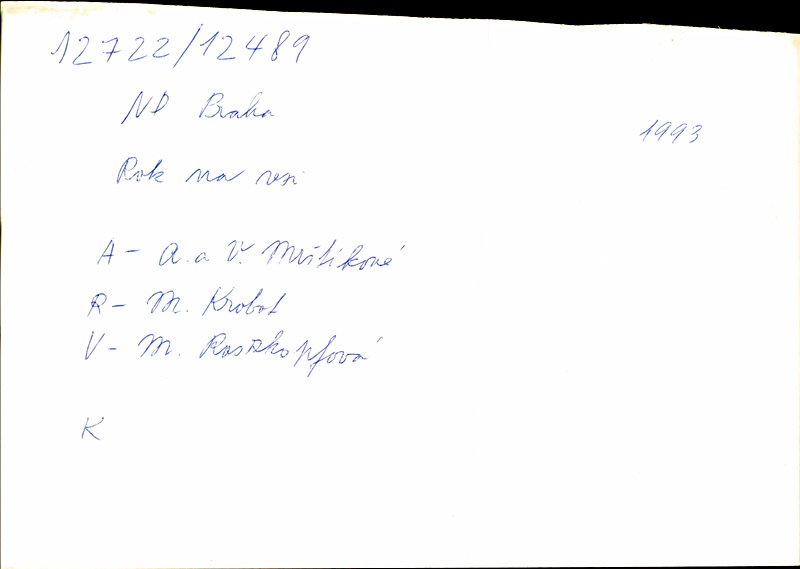 12722/12489
ND Praha
1993
Rok na vsi
A - A. a V. Mrštíkové
R - M. Krobot
V - M. Roszkopfová
K